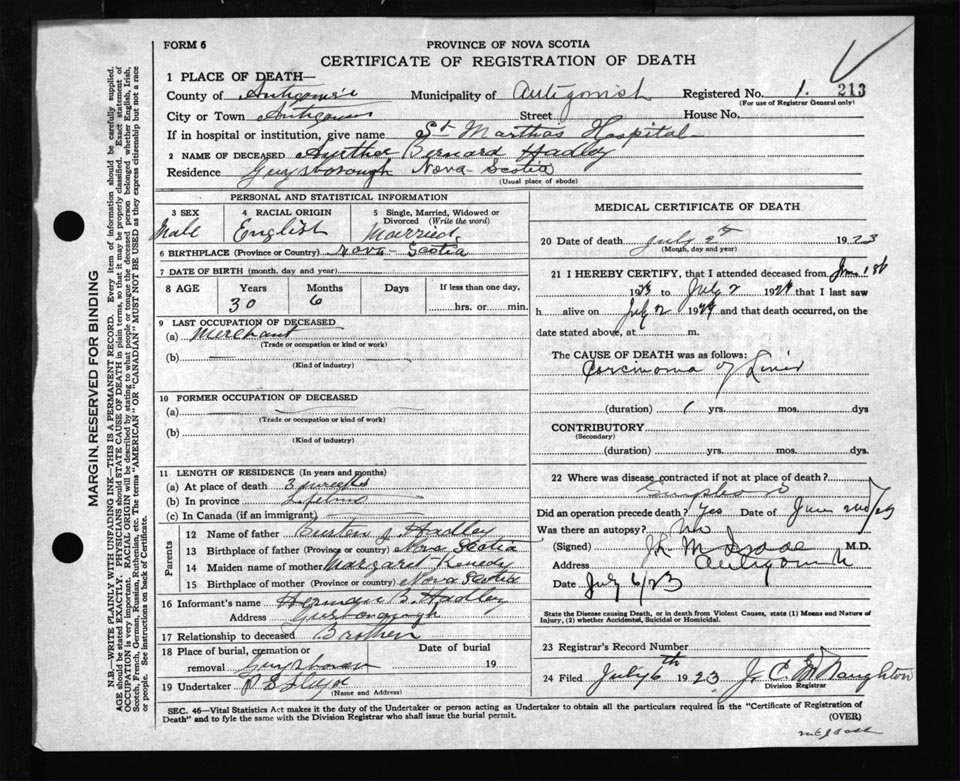 FORM 6
PROVINCE OF NOVA SCOTIA
CERTIFICATE OF REGISTRATION OF DEATH
1 PLACE OF DEATH—
County of Municipality of Antigonish Registered No. 1. 213
(For use of Registrar General only)
City or Town Street House No.
If in hospital or institution, give name St Marthas Hospital
2 NAME OF DECEASED Bernard Hadley
Residence Guysborough Nova Scotia
(Usual place of abode)
PERSONAL AND STATISTICAL INFORMATION
3 SEX 4 RACIAL ORIGIN 5 Single, Married, Widowed or Divorced (Write the word)
Male English Married
6 BIRTHPLACE (Province or Country) Nova-Scotia
7 DATE OF BIRTH (month, day and year)
8 AGE Years Months Days If less than one day,
30 6 hrs. or min.
9 LAST OCCUPATION OF DECEASED
(a) Merchant
(Trade or occupation or kind or work)
(b)
(Kind of industry)
10 FORMER OCCUPATION OF DECEASED
(a)
(Trade or occupation or kind of work)
(b)
(Kind of industry)
11 LENGTH OF RESIDENCE (In years and months)
(a) At place of death 3 weeks
(b) In province
(c) In Canada (if an immigrant)
Parents
12 Name of father Burton J. Hadley
13 Birthplace of father (Province or Country) Nova Scotia
14 Maiden name of mother Margaret Kenedy
15 Birthplace of mother (Province or Country) Nova Scotia
16 Informant's name Herman B. Hadley
Address
17 Relationship to deceased Brother
18 Place of burial, cremation or removal Date of burial 19
19 Undertaker
(Name and Address)
MEDICAL CERTIFICATE OF DEATH
20 Date of death July 2nd 1923
(Month, day and year)
21 I HEREBY CERTIFY, that I attended deceased from
19 to July 2 19 that I last saw
h alive on July 2 19 and that death occurred, on the
date stated above, at m.
The CAUSE OF DEATH was as follows:
Carcinoma of Liver
(duration) 1 yrs. mos. dys
CONTRIBUTORY
(Secondary)
(duration) yrs. mos. dys.
22 Where was disease contracted if not at place of death?
Did an operation precede death? Yes Date of June
Was there an autopsy? No
(Signed) M.D.
Address Antigonish
Date July 6/23
State the Disease causing Death, or in death from Violent Causes, state (1) Means and Nature of Injury, (2) whether Accidental, Suicidal or Homicidal.
23 Registrar's Record Number
24 Filed July 6th 1923 J. C. McNaughton
Division Registrar
SEC. 46—Vital Statistics Act makes it the duty of the Undertaker or person acting as Undertaker to obtain all the particulars required in the "Certificate of Registration of
Death" and to fyle the same with the Division Registrar who shall issue the burial permit.
(OVER)
MARGIN, RESERVED FOR BINDING
N.B.—WRITE PLAINLY WITH UNFADING INK—THIS IS A PERMANENT RECORD. Every item of information should be carefully supplied.
AGE should be stated EXACTLY. PHYSICIANS should STATE CAUSE OF DEATH in plain terms, so that it may be properly classified. Exact statement of
OCCUPATION is very important. RACIAL ORIGIN will be described by stating to what people or tongue the deceased person belonged whether English, Irish,
Scotch, French, German, Russian, Ruthenian, etc. The terms "AMERICAN" or "CANADIAN" MUST NOT BE USED as they express citizenship but not a race
or people. See instructions on back of Certificate.